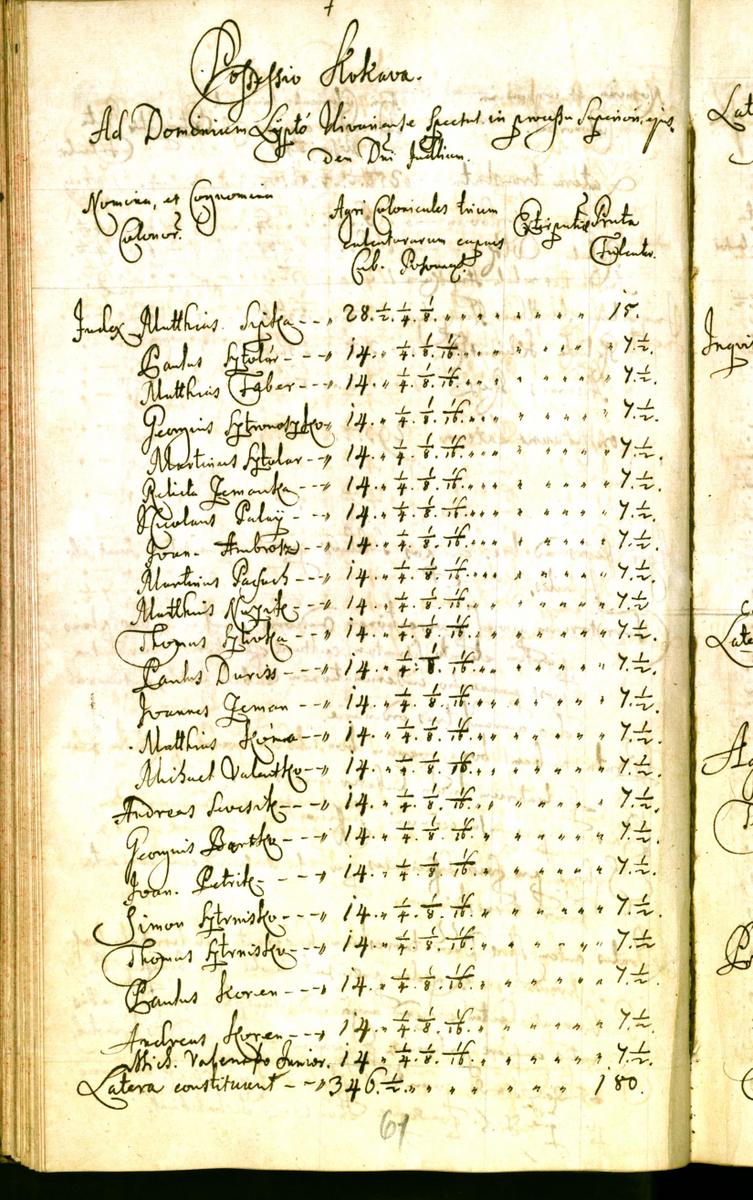 Possessio Kokava.
Ad Dominium Lyptó Ujvariense Spectat. in processu Superiori. ejus
dem Dni Judlium.
Nomina, et Cognomina
Colonor.
Agri Colonicales trium
calcaturarum capaces
Cub. Posoniens.
Extirpatitia
Prata
Falcator.
Judex Matthias Sipka 28. 1/2. 1/4. 1/8. 15.
Paulus Sztolár 14. 1/4. 1/8. 1/16. 7. 1/2.
Matthias Faber 14. 1/4. 1/8. 1/16. 7. 1/2.
Georgius 14. 1/4. 1/8. 1/16. 7. 1/2.
Martinus Sztolar 14. 1/4. 1/8. 1/16. 7. 1/2.
Relicta Zemanka 14. 1/4. 1/8. 1/16. 7. 1/2.
Nicolaus Paluÿ 14. 1/4. 1/8. 1/16. 7. 1/2.
Joan. Ambros 14. 1/4. 1/8. 1/16. 7. 1/2.
Martinus 14. 1/4. 1/8. 1/16. 7. 1/2.
Matthias 14. 1/4. 1/8. 1/16. 7. 1/2
Thomas 14. 1/4. 1/8. 1/16. 7. 1/2.
Paulus Duriss 14. 1/4. 1/8. 1/16. 7. 1/2.
Joannes Zeman 14. 1/4. 1/8. 1/16. 7. 1/2.
Matthias 14. 1/4. 1/8. 1/16. 7. 1/2.
Michael Valentko 14. 1/4. 1/8. 1/16. 7. 1/2.
Andreas 14. 1/4. 1/8. 1/16. 7. 1/2.
Georgius Bartko 14. 1/4. 1/8. 1/16. 7. 1/2.
Joan. Petrik 14. 1/4. 1/8. 1/16. 7. 1/2.
Simon Sztrnisko 14. 1/4. 1/8. 1/16. 7. 1/2.
Thomas Sztrnisko 14. 1/4. 1/8. 1/16. 7. 1/2
Paulus Koren 14. 1/4. 1/8. 1/16. 7. 1/2.
Andreas Koren 14. 1/4. 1/8. 1/16. 7. 1/2.
Mich. Valentko Junior. 14. 1/4. 1/8. 1/16. 7. 1/2.
Latera constituunt 346. 1/2. 180.
61